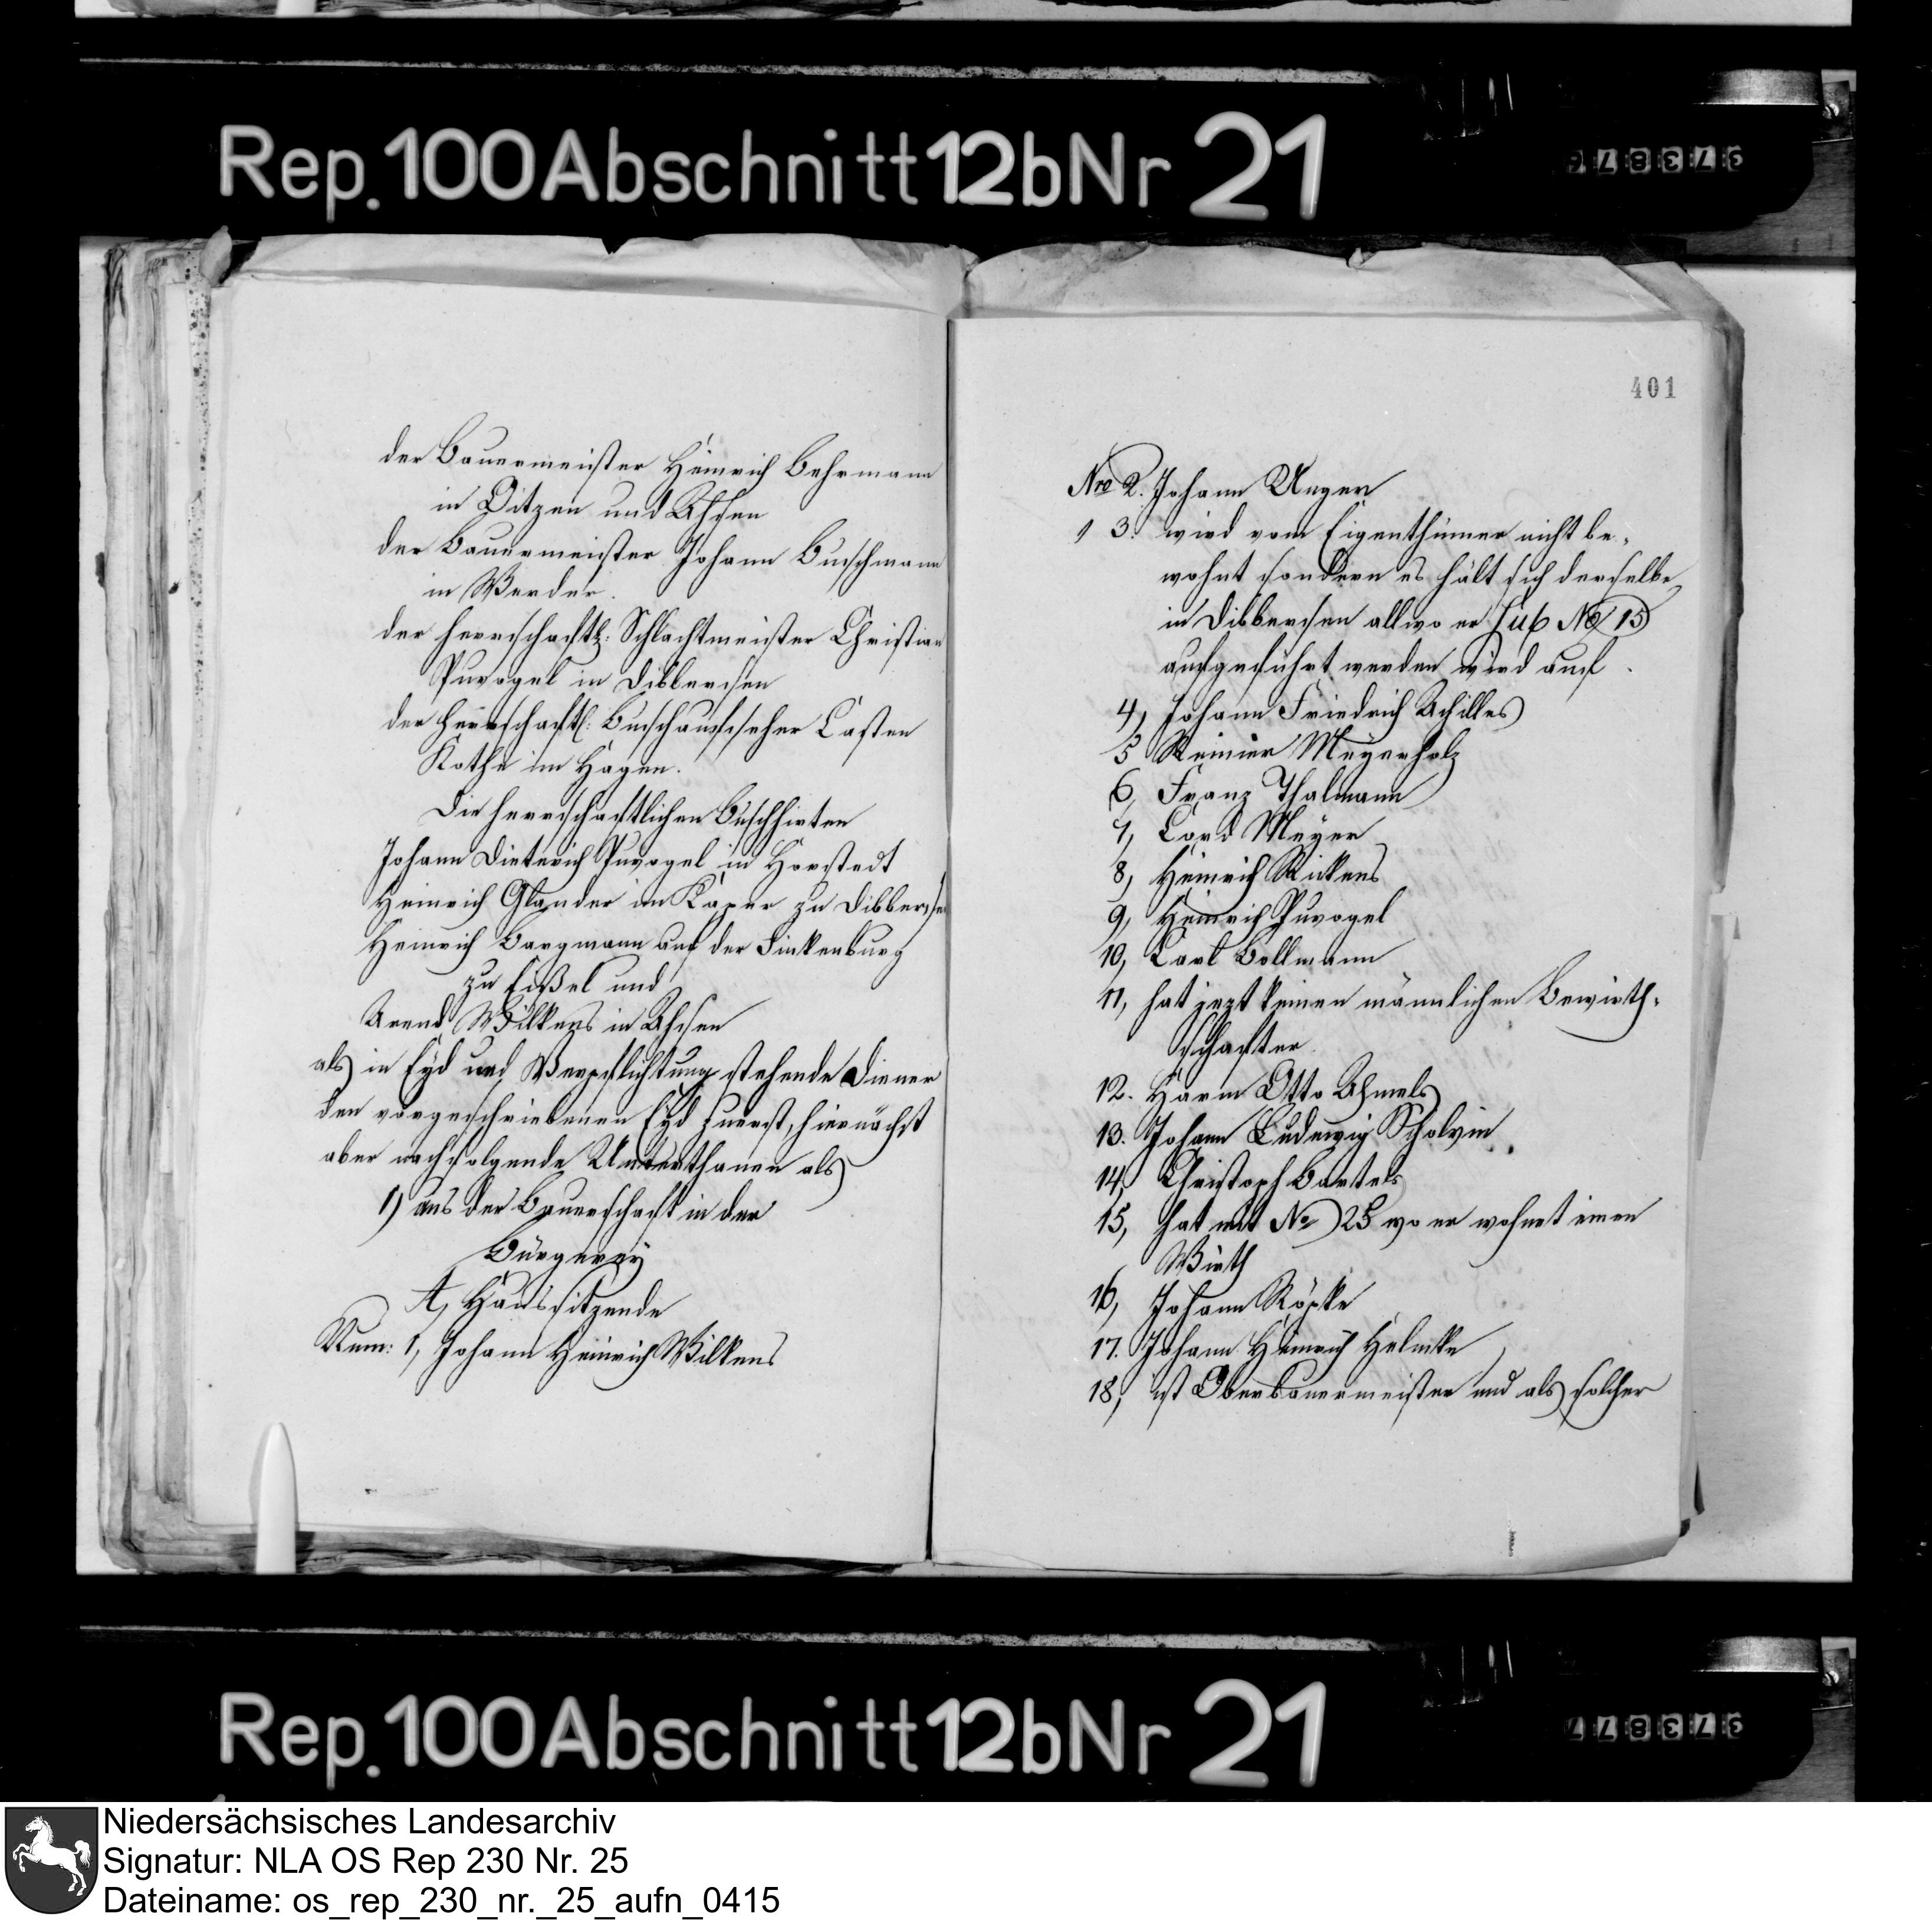 Rep. 100 Abschnitt 12b Nr 21
der Bauermeister Heinrich Behrmann
in Ditzen und Ahsen
der Bauermeister Johann Buschmann
in Werder.
der herrschaftl: Schlachtmeister Christian
Puvogel in Dibbersen
der herrschaftl: Buschaufseher Casten
Kothe im Hagen.
Die herrschaftlichen Buschhirten
Johann Dieterich Puvogel in Horstedt
Heinrich Glander im Kaper zu Dibbersen
Heinrich Bargmann auf der Finkenburg
zu Eißel und
Arend Wilkens in Ahsen
als in Eyd und Verpflichtung stehende Diener
den vorgeschriebenen Eyd zuerst, hiernächst
aber nachfolgende Unterthanen als
1) aus der Bauerschaft in der
Bürgerey
A, Haussitzende
Num: 1, Johann Heinrich Wilkens
401
Nro 2. Johann Unger
3. wird vom Eigenthümer nicht be-
wohnt sondern es hält sich derselbe
in Dibbersen allwo er sub No 15
aufgeführt werden wird auf.
4, Johann Friedrich Achilles
5 Reinier Meyerholz
6, Franz Thalmann
7, Cord Meyer
8, Heinrich Rickens
9, Heinrich Puvogel
10, Carl Bollmann
11, hat jezt keinen männlichen Bewirth-
schafter
12. Harm Otto Ahmels
13. Johann Ludewig Scholvin
14, Christoph Bartels
15, hat mit No 25 wo er wohnet einen
Wirth
16, Johann Röpke
17. Johann Heinrich Helmke
18, ist Oberbauermeister und als solcher
Rep. 100 Abschnitt 12b Nr 21
Niedersächsisches Landesarchiv
Signatur: NLA OS Rep 230 Nr. 25
Dateiname: os_rep_230_nr._25_aufn_0415